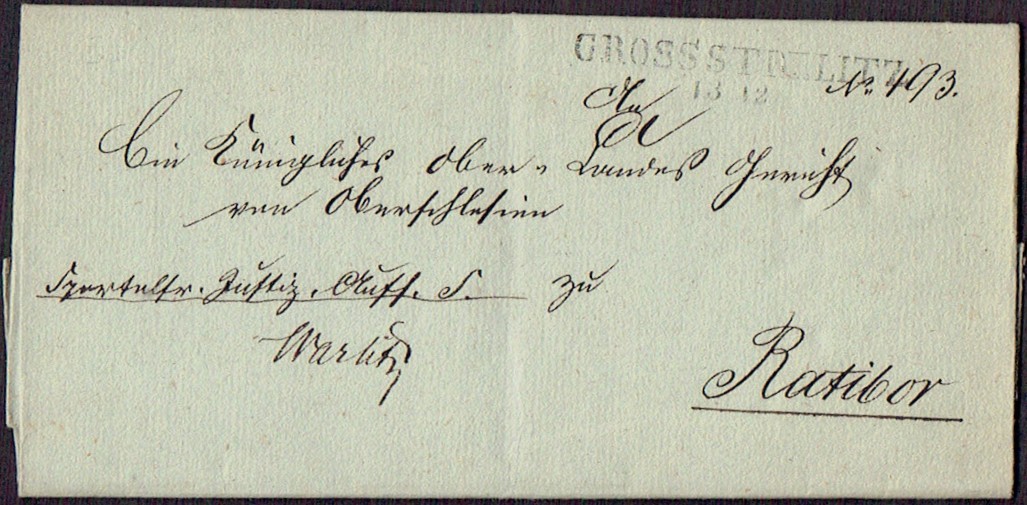 GROSS STREHLITZ
13 12
No 493.
An
Ein Königliches Ober-Landes Gericht
von Oberschlesien
Sportelfr. Justiz. Auff. S. zu
Warlitz
Ratibor